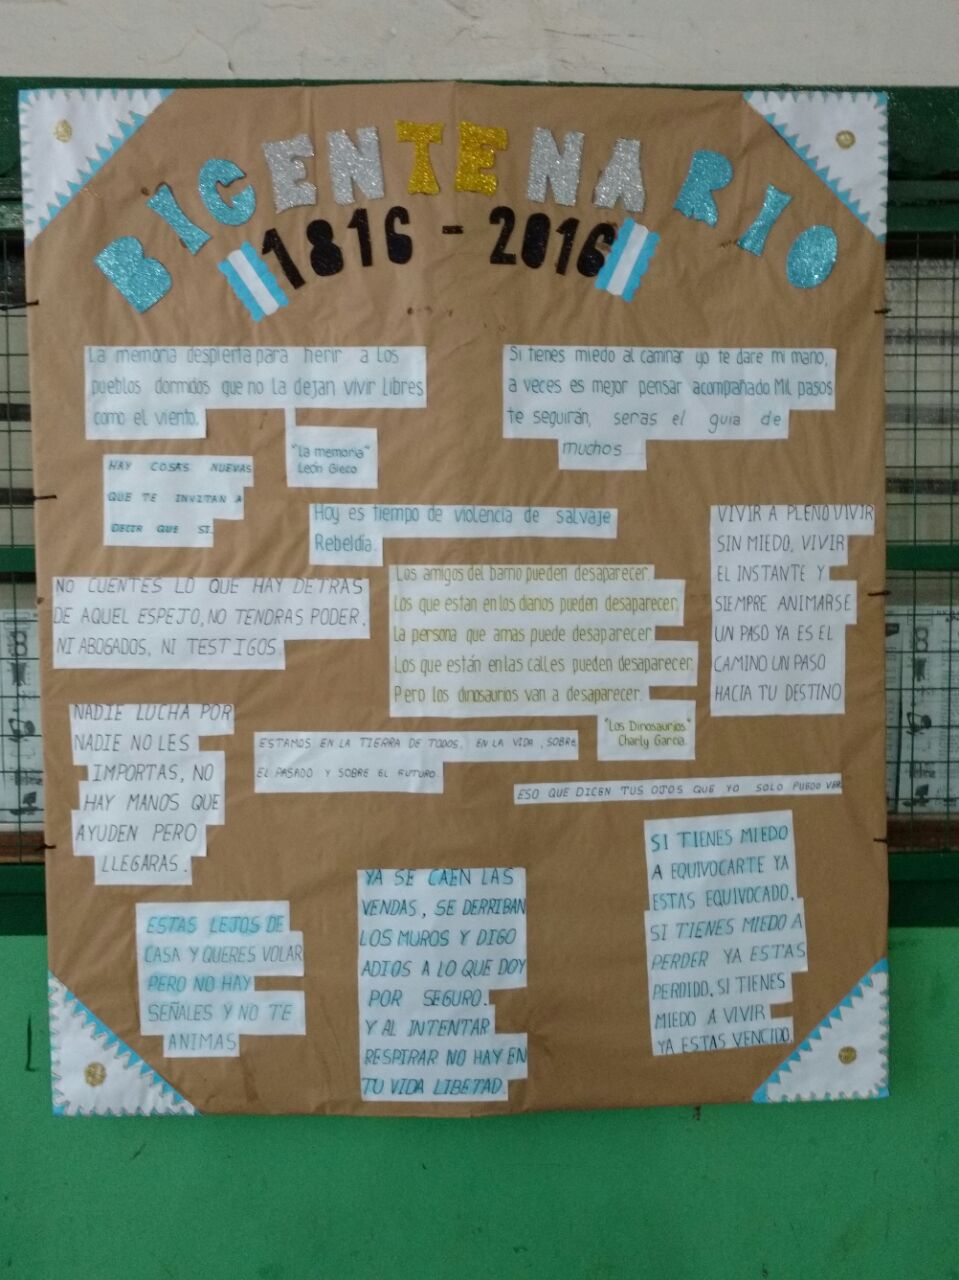 BICENTENARIO
1816 - 2016
La memoria despierta para herir a los
pueblos dormidos que no la dejan vivir libres
como el viento.
"La memoria"
León Gieco
Si tienes miedo al caminar yo te dare mi mano,
a veces es mejor pensar acompañado Mil pasos
te seguirán, seras el guia de
muchos
HAY COSAS NUEVAS
QUE TE INVITAN A
DECIR QUE SI.
Hoy es tiempo de violencia de salvaje
Rebeldía.
NO CUENTES LO QUE HAY DETRAS
DE AQUEL ESPEJO, NO TENDRAS PODER,
NI ABOGADOS, NI TESTIGOS
Los amigos del barrio pueden desaparecer
Los que estan en los diarios pueden desaparecer,
La persona que amas puede desaparecer
Los que están en las calles pueden desaparecer
Pero los dinosaurios van a desaparecer.
"Los Dinosaurios"
Charly Garcia.
VIVIR A PLENO VIVIR
SIN MIEDO, VIVIR
EL INSTANTE Y
SIEMPRE ANIMARSE
UN PASO YA ES EL
CAMINO UN PASO
HACIA TU DESTINO
NADIE LUCHA POR
NADIE NO LES
IMPORTAS, NO
HAY MANOS QUE
AYUDEN PERO
LLEGARAS.
ESTAMOS EN LA TIERRA DE TODOS, EN LA VIDA, SOBRE
EL PASADO Y SOBRE EL FUTURO.
ESO QUE DICEN TUS OJOS QUE YO SOLO PUEDO VER
ESTAS LEJOS DE
CASA Y QUERES VOLAR
PERO NO HAY
SEÑALES Y NO TE
ANIMAS
YA SE CAEN LAS
VENDAS, SE DERRIBAN
LOS MUROS Y DIGO
ADIOS A LO QUE DOY
POR SEGURO.
Y AL INTENTAR
RESPIRAR NO HAY EN
TU VIDA LIBETAD.
SI TIENES MIEDO
A EQUIVOCARTE YA
ESTAS EQUIVOCADO,
SI TIENES MIEDO A
PERDER YA ESTAS
PERDIDO, SI TIENES
MIEDO A VIVIR
YA ESTAS VENCIDO.